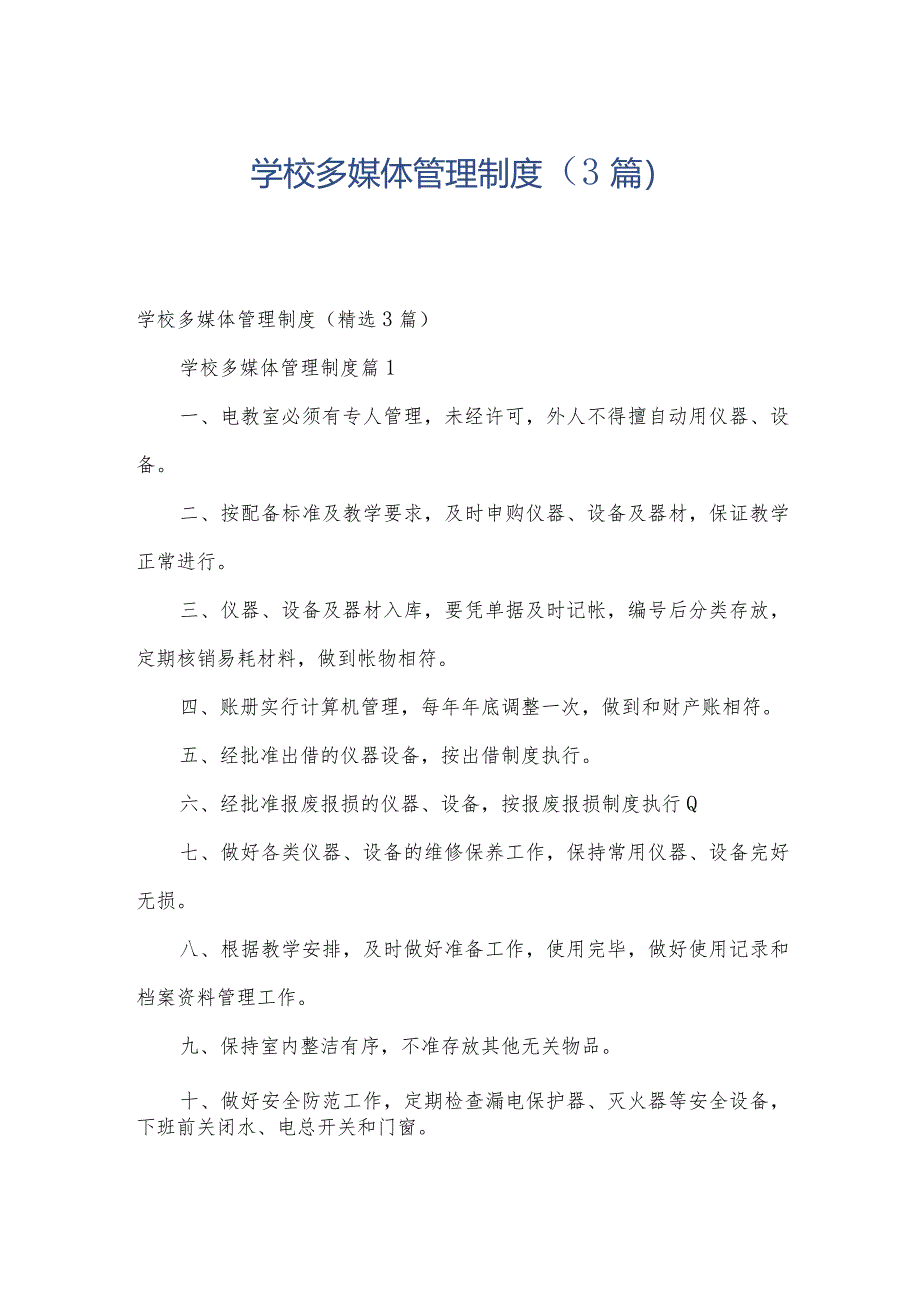 学校多媒体管理制度（3 篇）
学校多媒体管理制度（精选 3 篇）
学校多媒体管理制度篇 1
一、电教室必须有专人管理，未经许可，外人不得擅自动用仪器、设
备。
二、按配备标准及教学要求，及时申购仪器、设备及器材，保证教学
正常进行。
三、仪器、设备及器材入库，要凭单据及时记帐，编号后分类存放，
定期核销易耗材料，做到帐物相符。
四、账册实行计算机管理，每年年底调整一次，做到和财产账相符。
五、经批准出借的仪器设备，按出借制度执行。
六、经批准报废报损的仪器、设备，按报废报损制度执行 Q
七、做好各类仪器、设备的维修保养工作，保持常用仪器、设备完好
无损。
八、根据教学安排，及时做好准备工作，使用完毕，做好使用记录和
档案资料管理工作。
九、保持室内整洁有序，不准存放其他无关物品。
十、做好安全防范工作，定期检查漏电保护器、灭火器等安全设备，
下班前关闭水、电总开关和门窗。